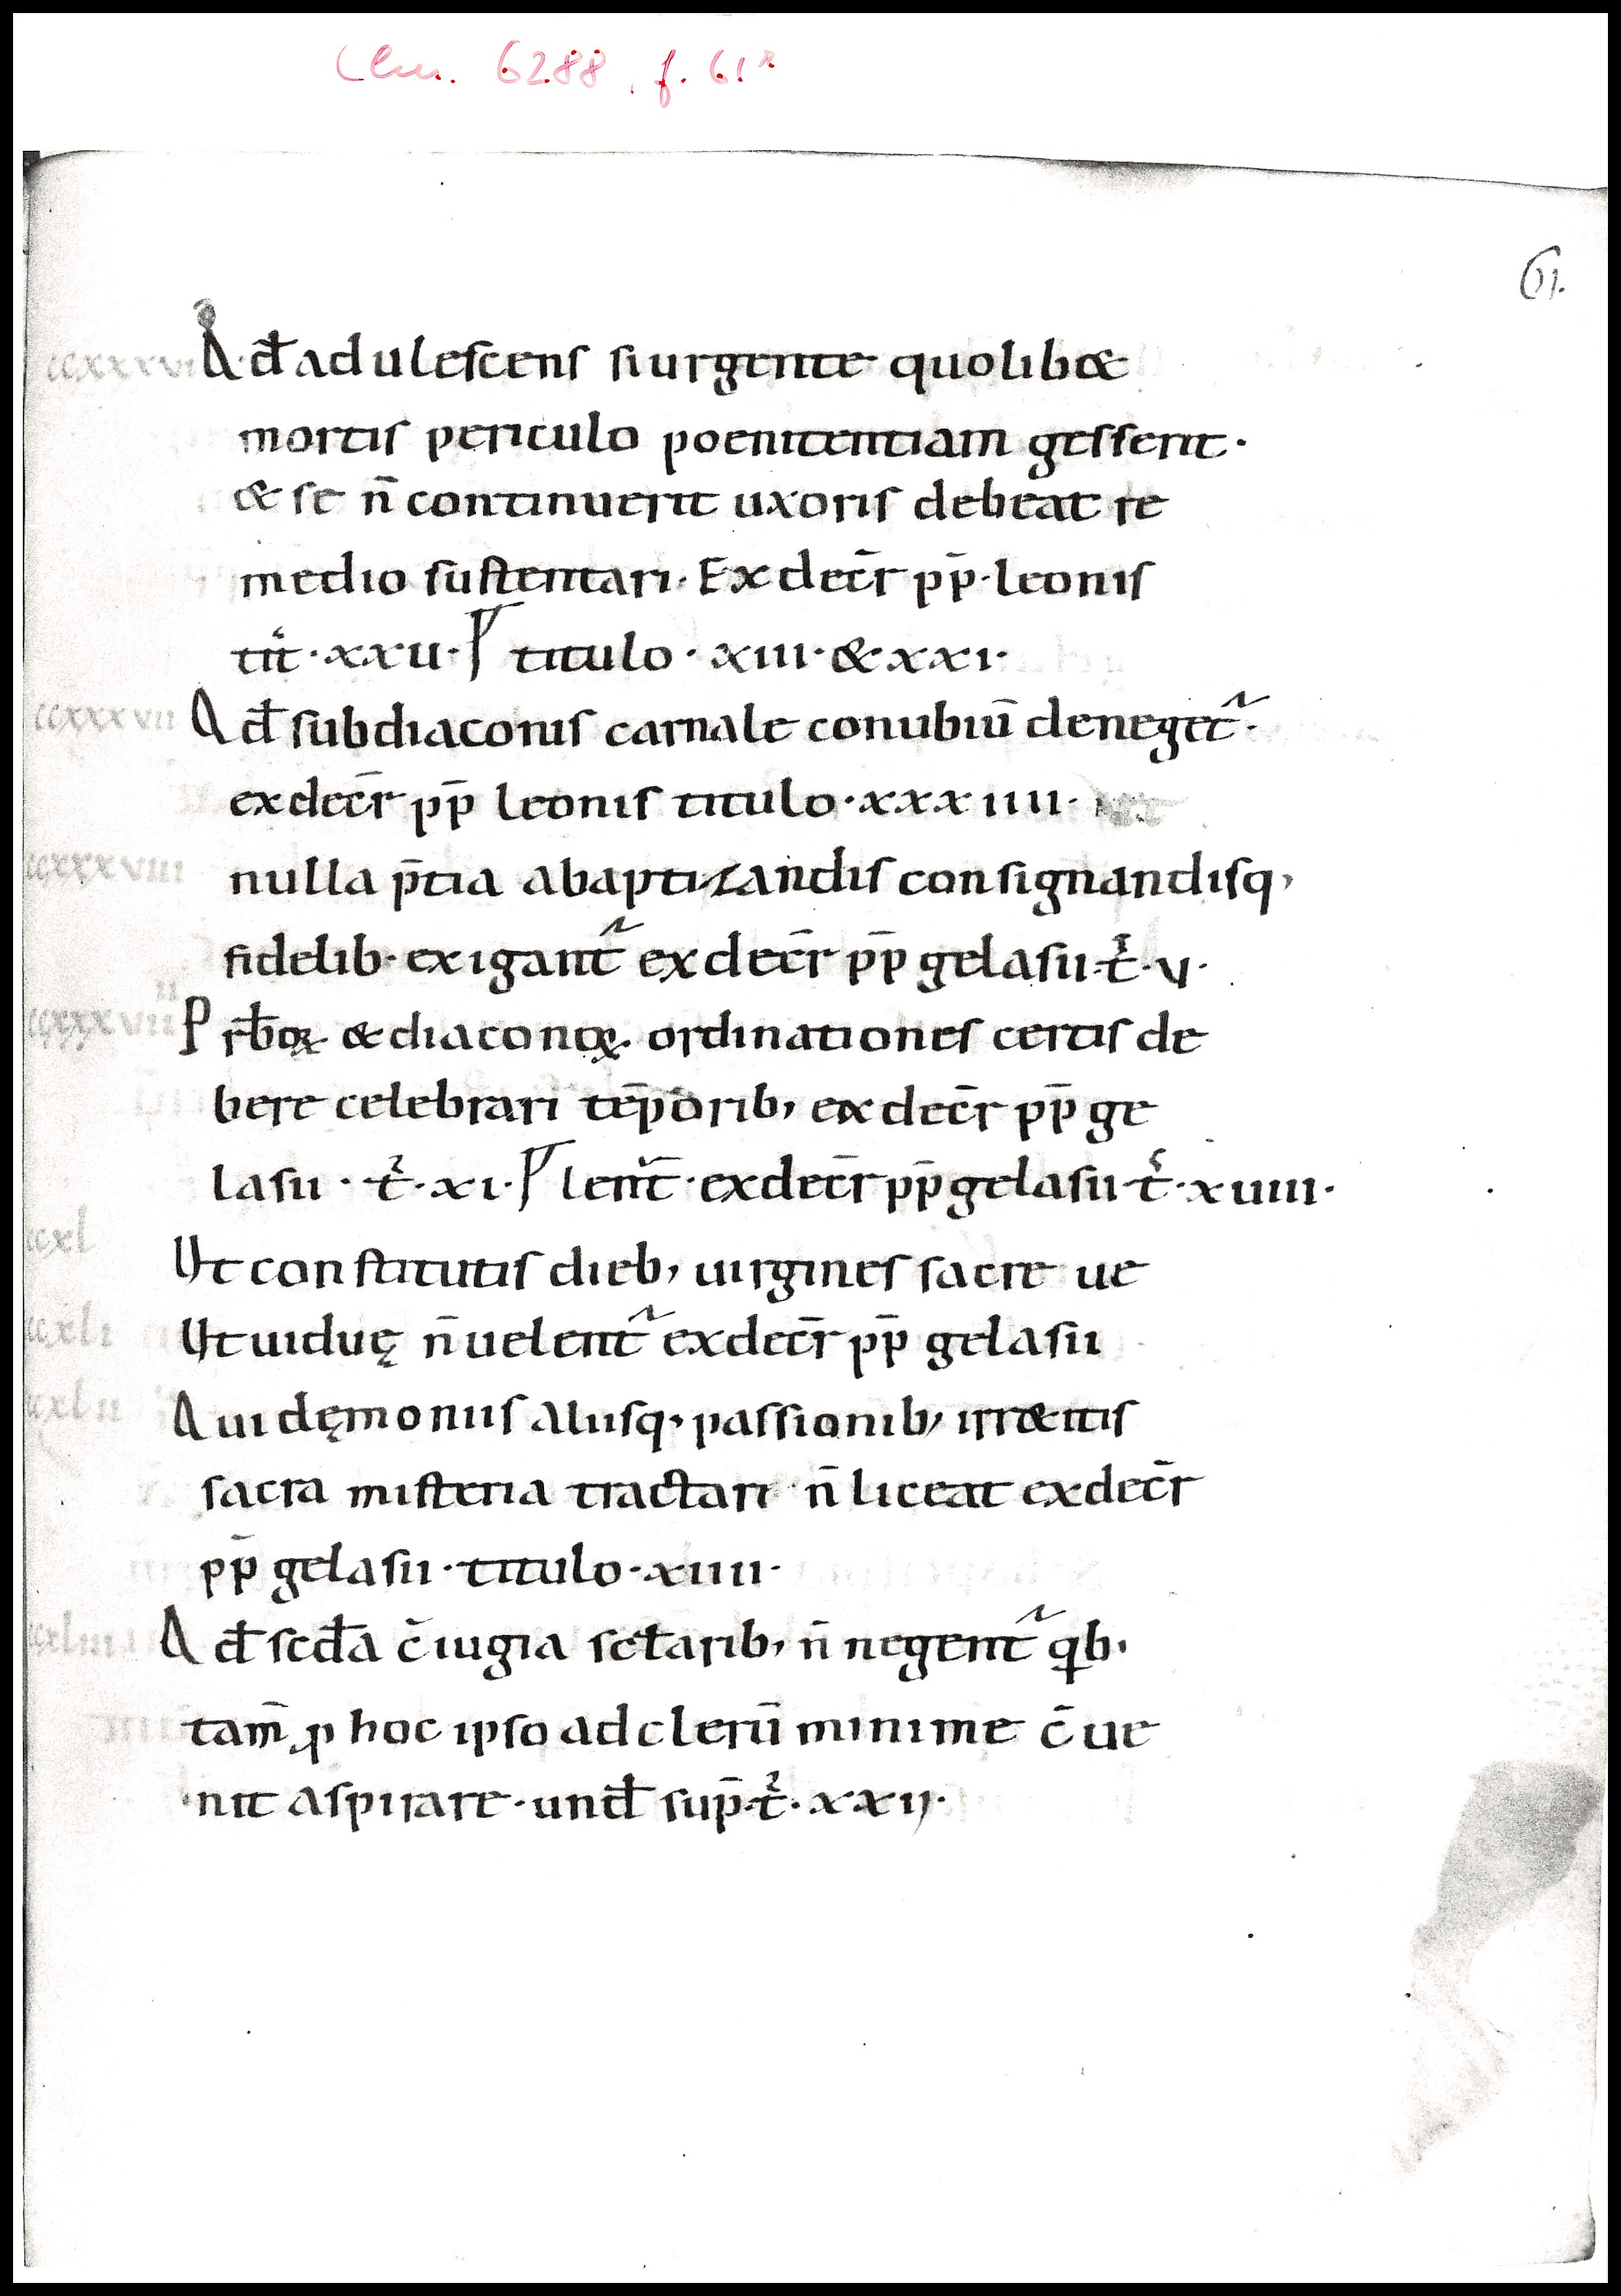 Clm. 6288, f. 61r
61.
ccxxxvi Qđ adulescens si urgente quolib&
mortis periculo poenitentiam gesserit·
& se n̄ continuerit uxoris debeat re
medio sustentari· Ex decr̄ pp̄· leonis
tit̄· xxu· titulo· xiii· & xxi·
ccxxxvii Qđ subdiaconis carnale conubiū deneget᷑·
ex decr̄ pp̄ leonis titulo· xxxiiii·
ccxxxviii nulla p̄tia a baptizandis consignandisq,
fidelib· exigant᷑ ex decr̄ pp̄ gelasii· t̄· v·
ccxxxviiii Prb̄oꝝ & diaconoꝝ ordinationes certis de
bere celebrari tēporib, ex decr̄ pp̄ ge
lasii· t̄· xi· lent᷑· ex decr̄ pp̄ gelasii t̄· xuiii·
ccxl Ut constitutis dieb, uirgines sacre ue
ccxli Ut uiduę n̄ uelent᷑ ex decr̄ pp̄ gelasii
ccxlii A ui dęmoniis aliisq· passionib, irr&itis
sacra misteria tractari n̄ liceat ex decr̄
pp̄ gelasii· titulo· xiiii·
ccxliii Qđ scđa c̄iugia scłarib, n̄ negent᷑ qib·
tam̄ ꝓ hoc ipso ad clerū minime c̄ue
nit aspirare· unđ sup̄· t̄· xxii·